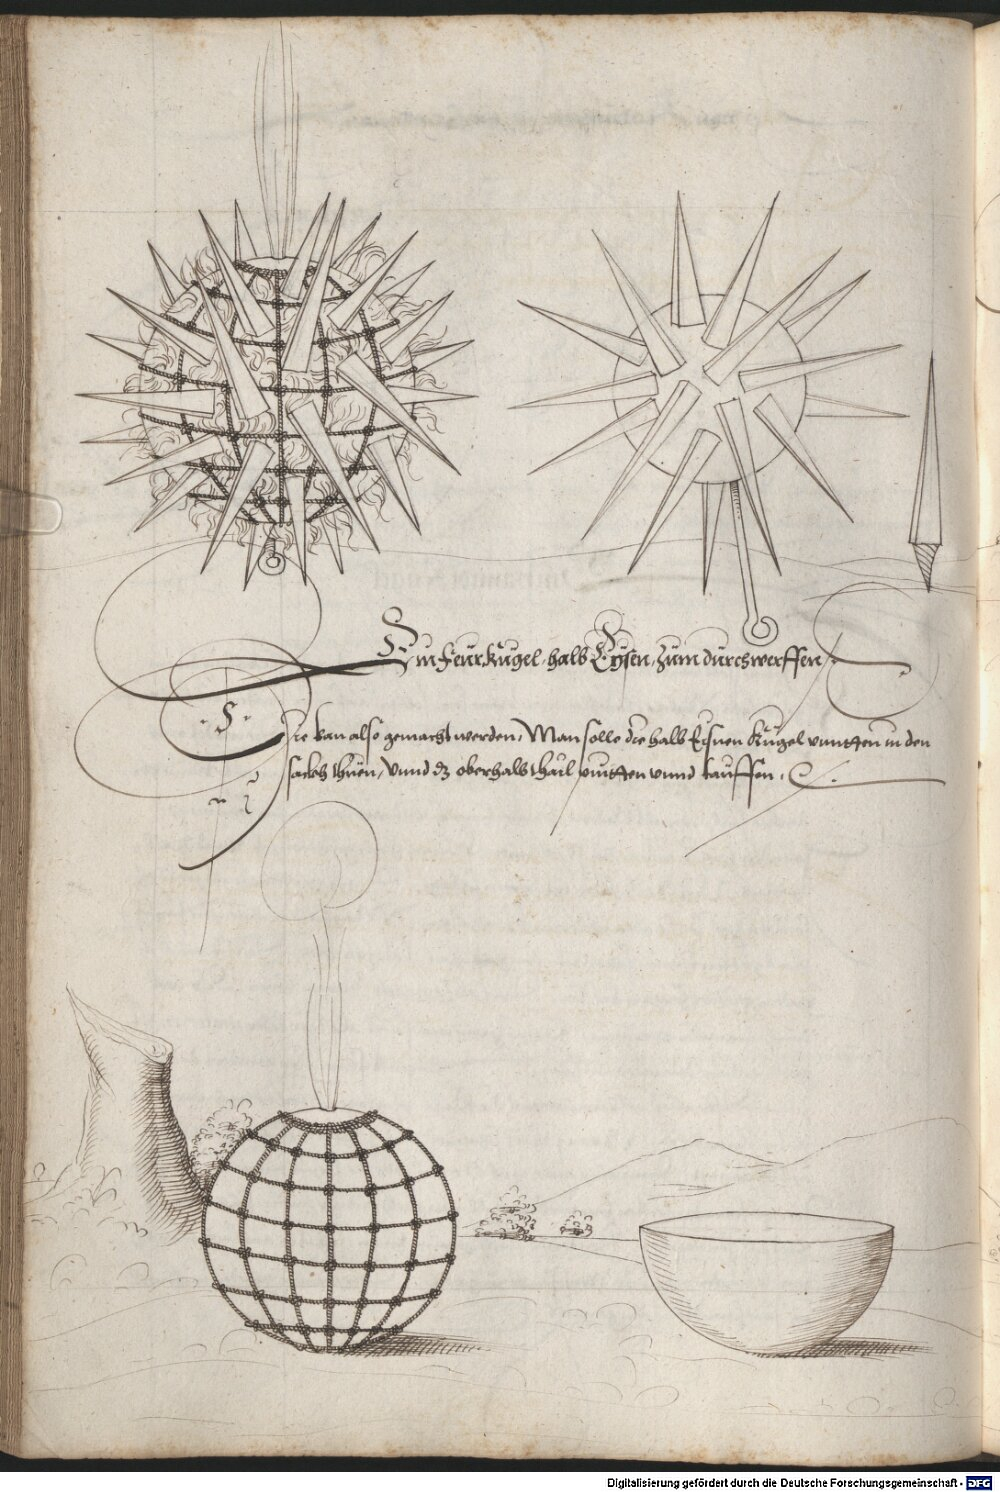 Ein feur Kugel, halb Eysen, zum durchwerffen,
Die kan also gemacht werden, Man solle die halb Eisnen Kugel unntten in den
sackh thuen, Unnd dz oberhalb thail pintten unnd tauffen.
Digitalisierung gefördert durch die Deutsche Forschungsgemeinschaft - DFG